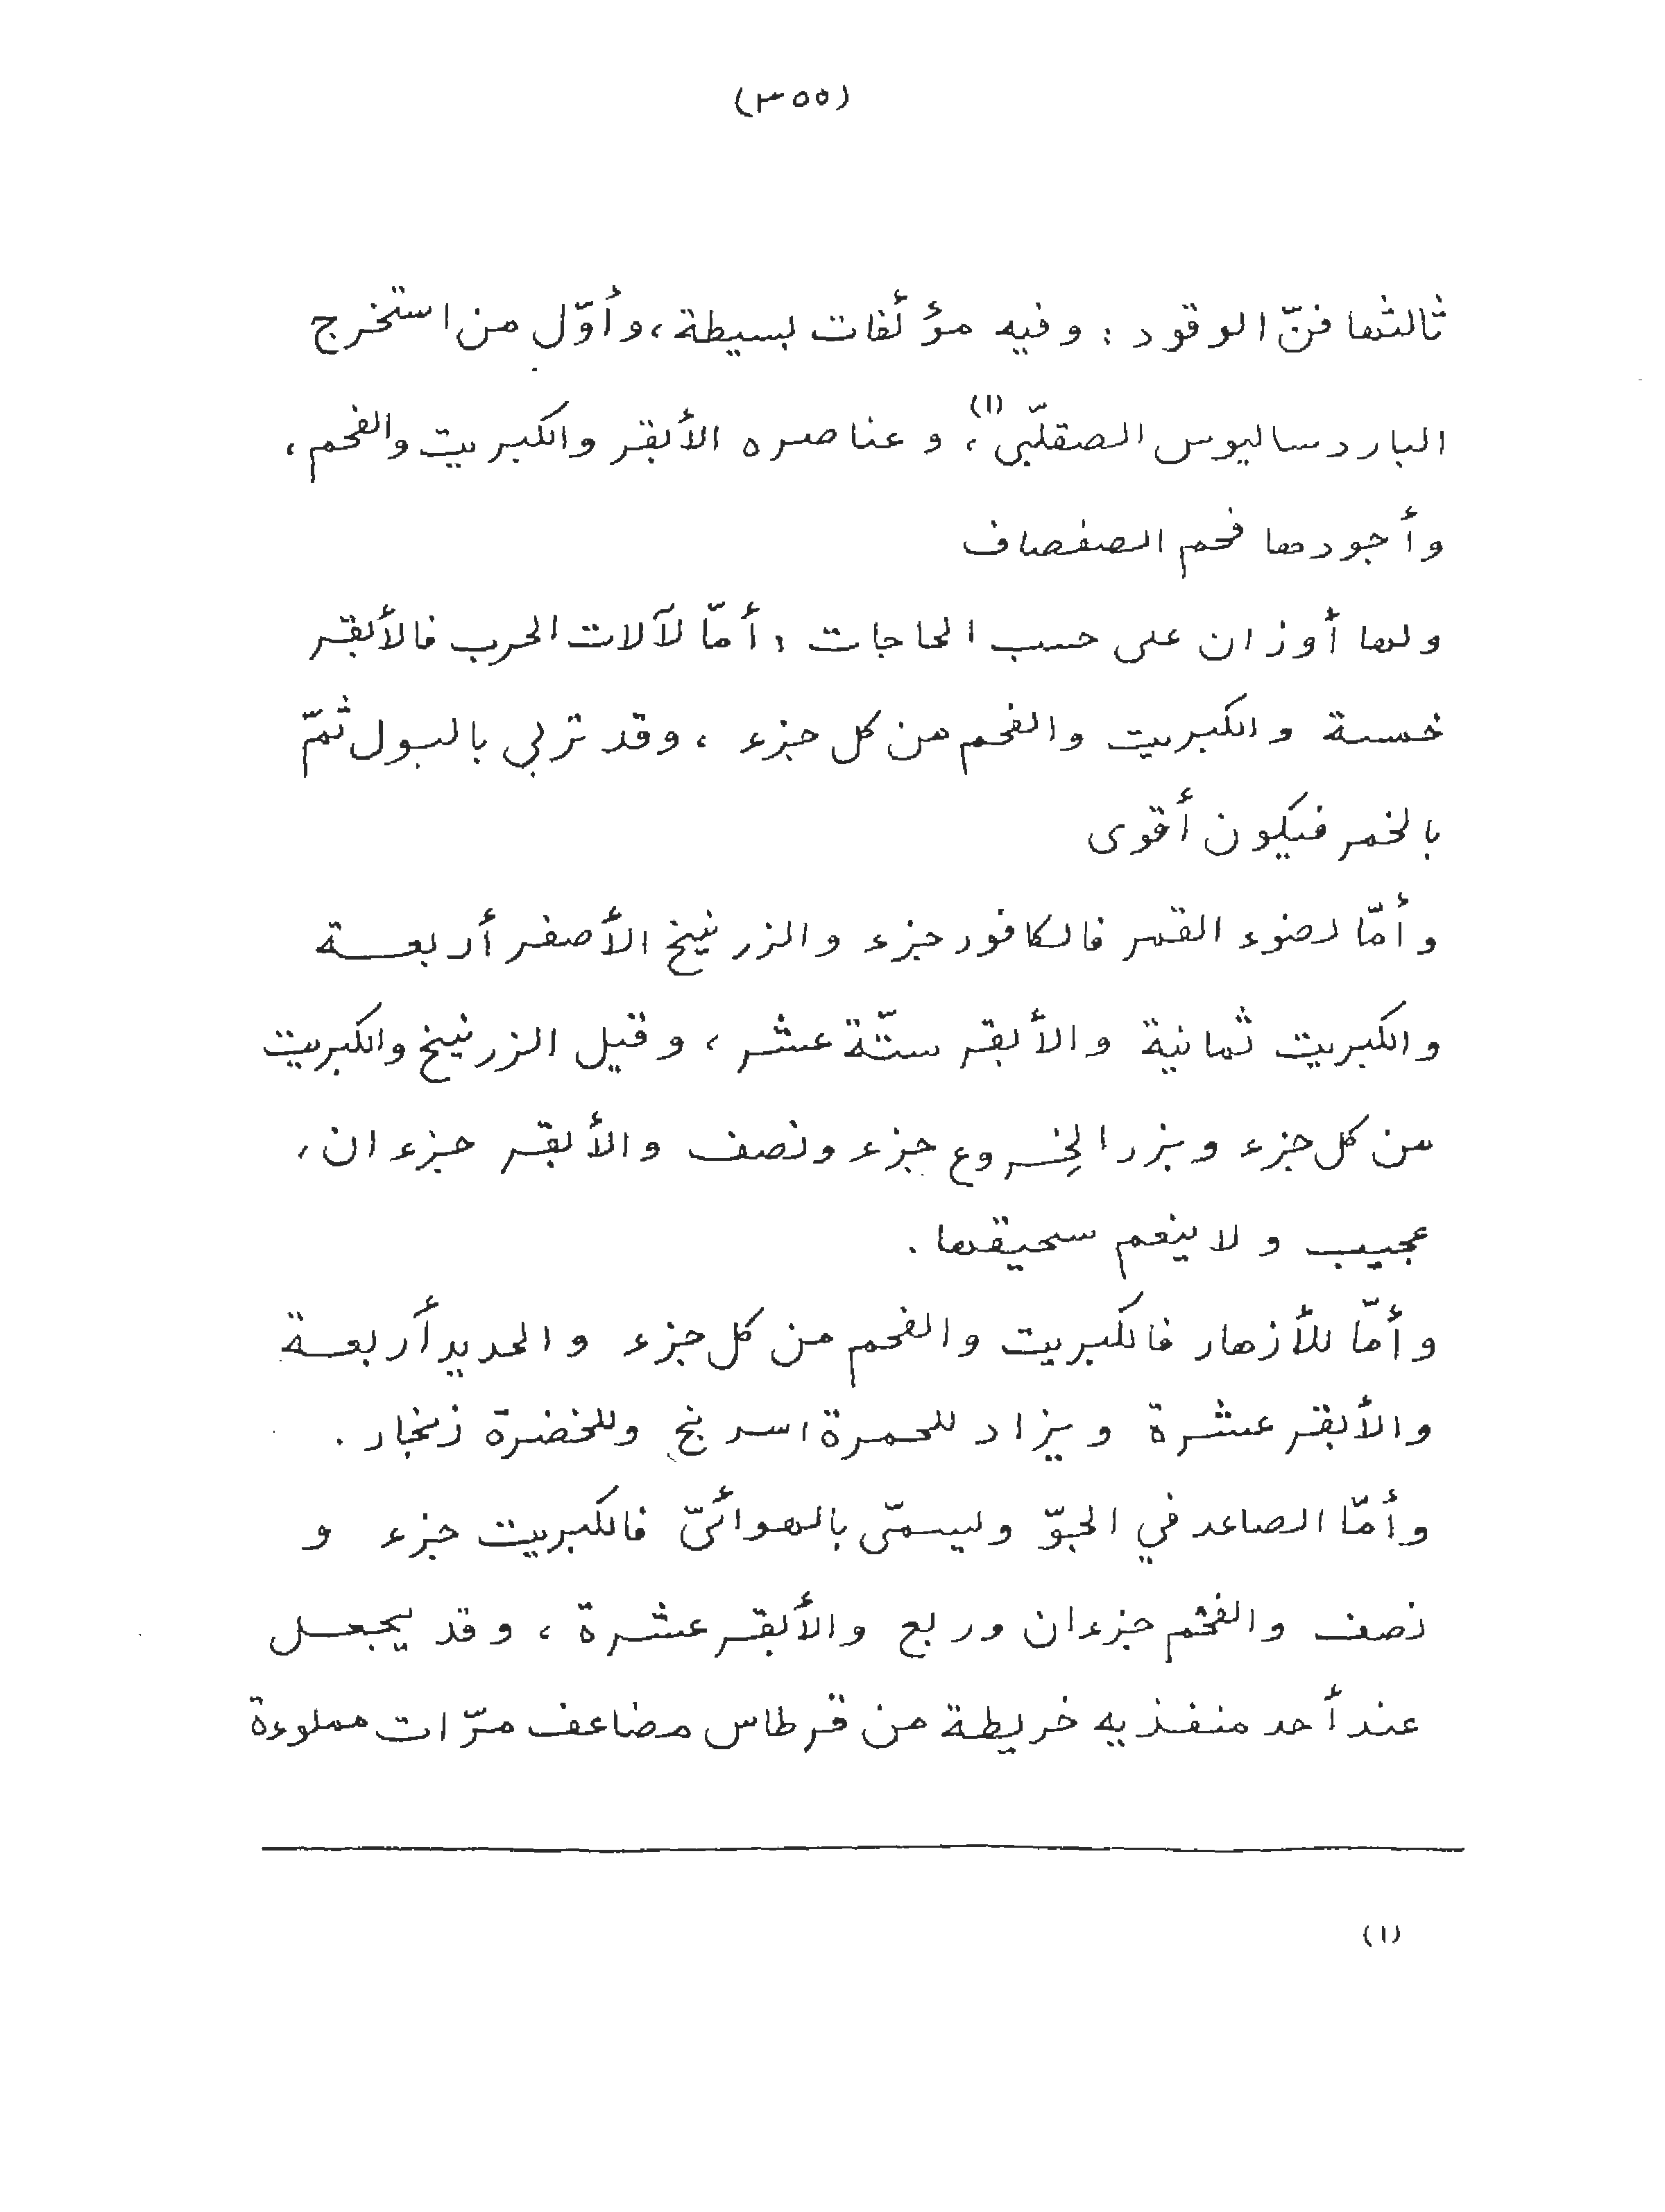 (٣٥٥)
ثالثها فنّ الوقود : وفيه مؤلّفات بسيطة ، وأوّل من استخرج
البارد ساليوس الصقلّبي (١) ، وعناصره الأبقر والكبريت والفحم ،
وأجودها فحم الصفصاف
ولها أوزان على حسب الحاجات : أمّا لآلات الحرب فالأبقر
خمسة والكبريت والفحم من كل جزء ، وقد تربي بالبول ثمّ
بالخمر فيكون أقوى
وأمّا لضوء القمر فالكافور جزء والزرنيخ الأصفر أربعـــة
والكبريت ثمانية والأبقر ستّة عشر ، وقيل الزرنيخ والكبريت
من كل جزء وبزر الخِروع جزء ونصف والأبقر جزءان ،
عجيب ولا ينعم سحيقها .
وأمّا للأزهار فالكبريت والفحم من كل جزء والحديد أربعـة
والأبقر عشرة ويزاد للحمرة اسرنج وللخضرة زنجار .
وأمّا الصاعد في الجوّ وليسمّى بالهوائيّ فالكبريت جزء و
نصف والفحم جزءان وربع والأبقر عشرة ، وقد يجعـل
عند أحد منفذيه خريطة من قرطاس مضاعف مرّات مملوءة
(١)